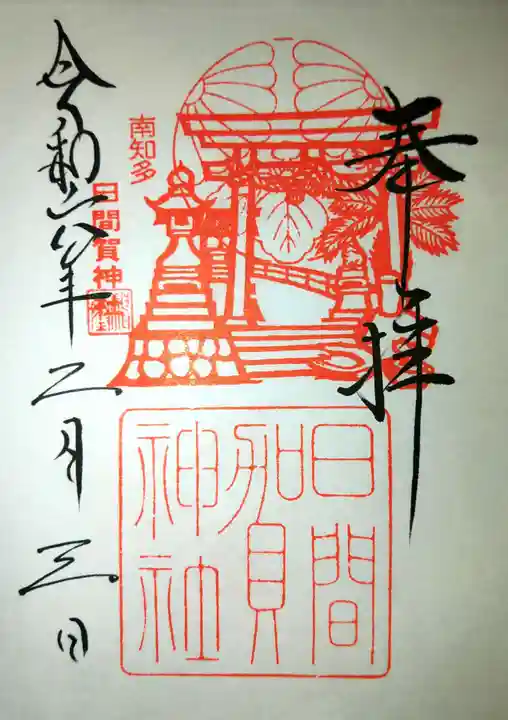 奉拝
日間
賀
神社
南知多
日間賀神社
令和六年二月三日